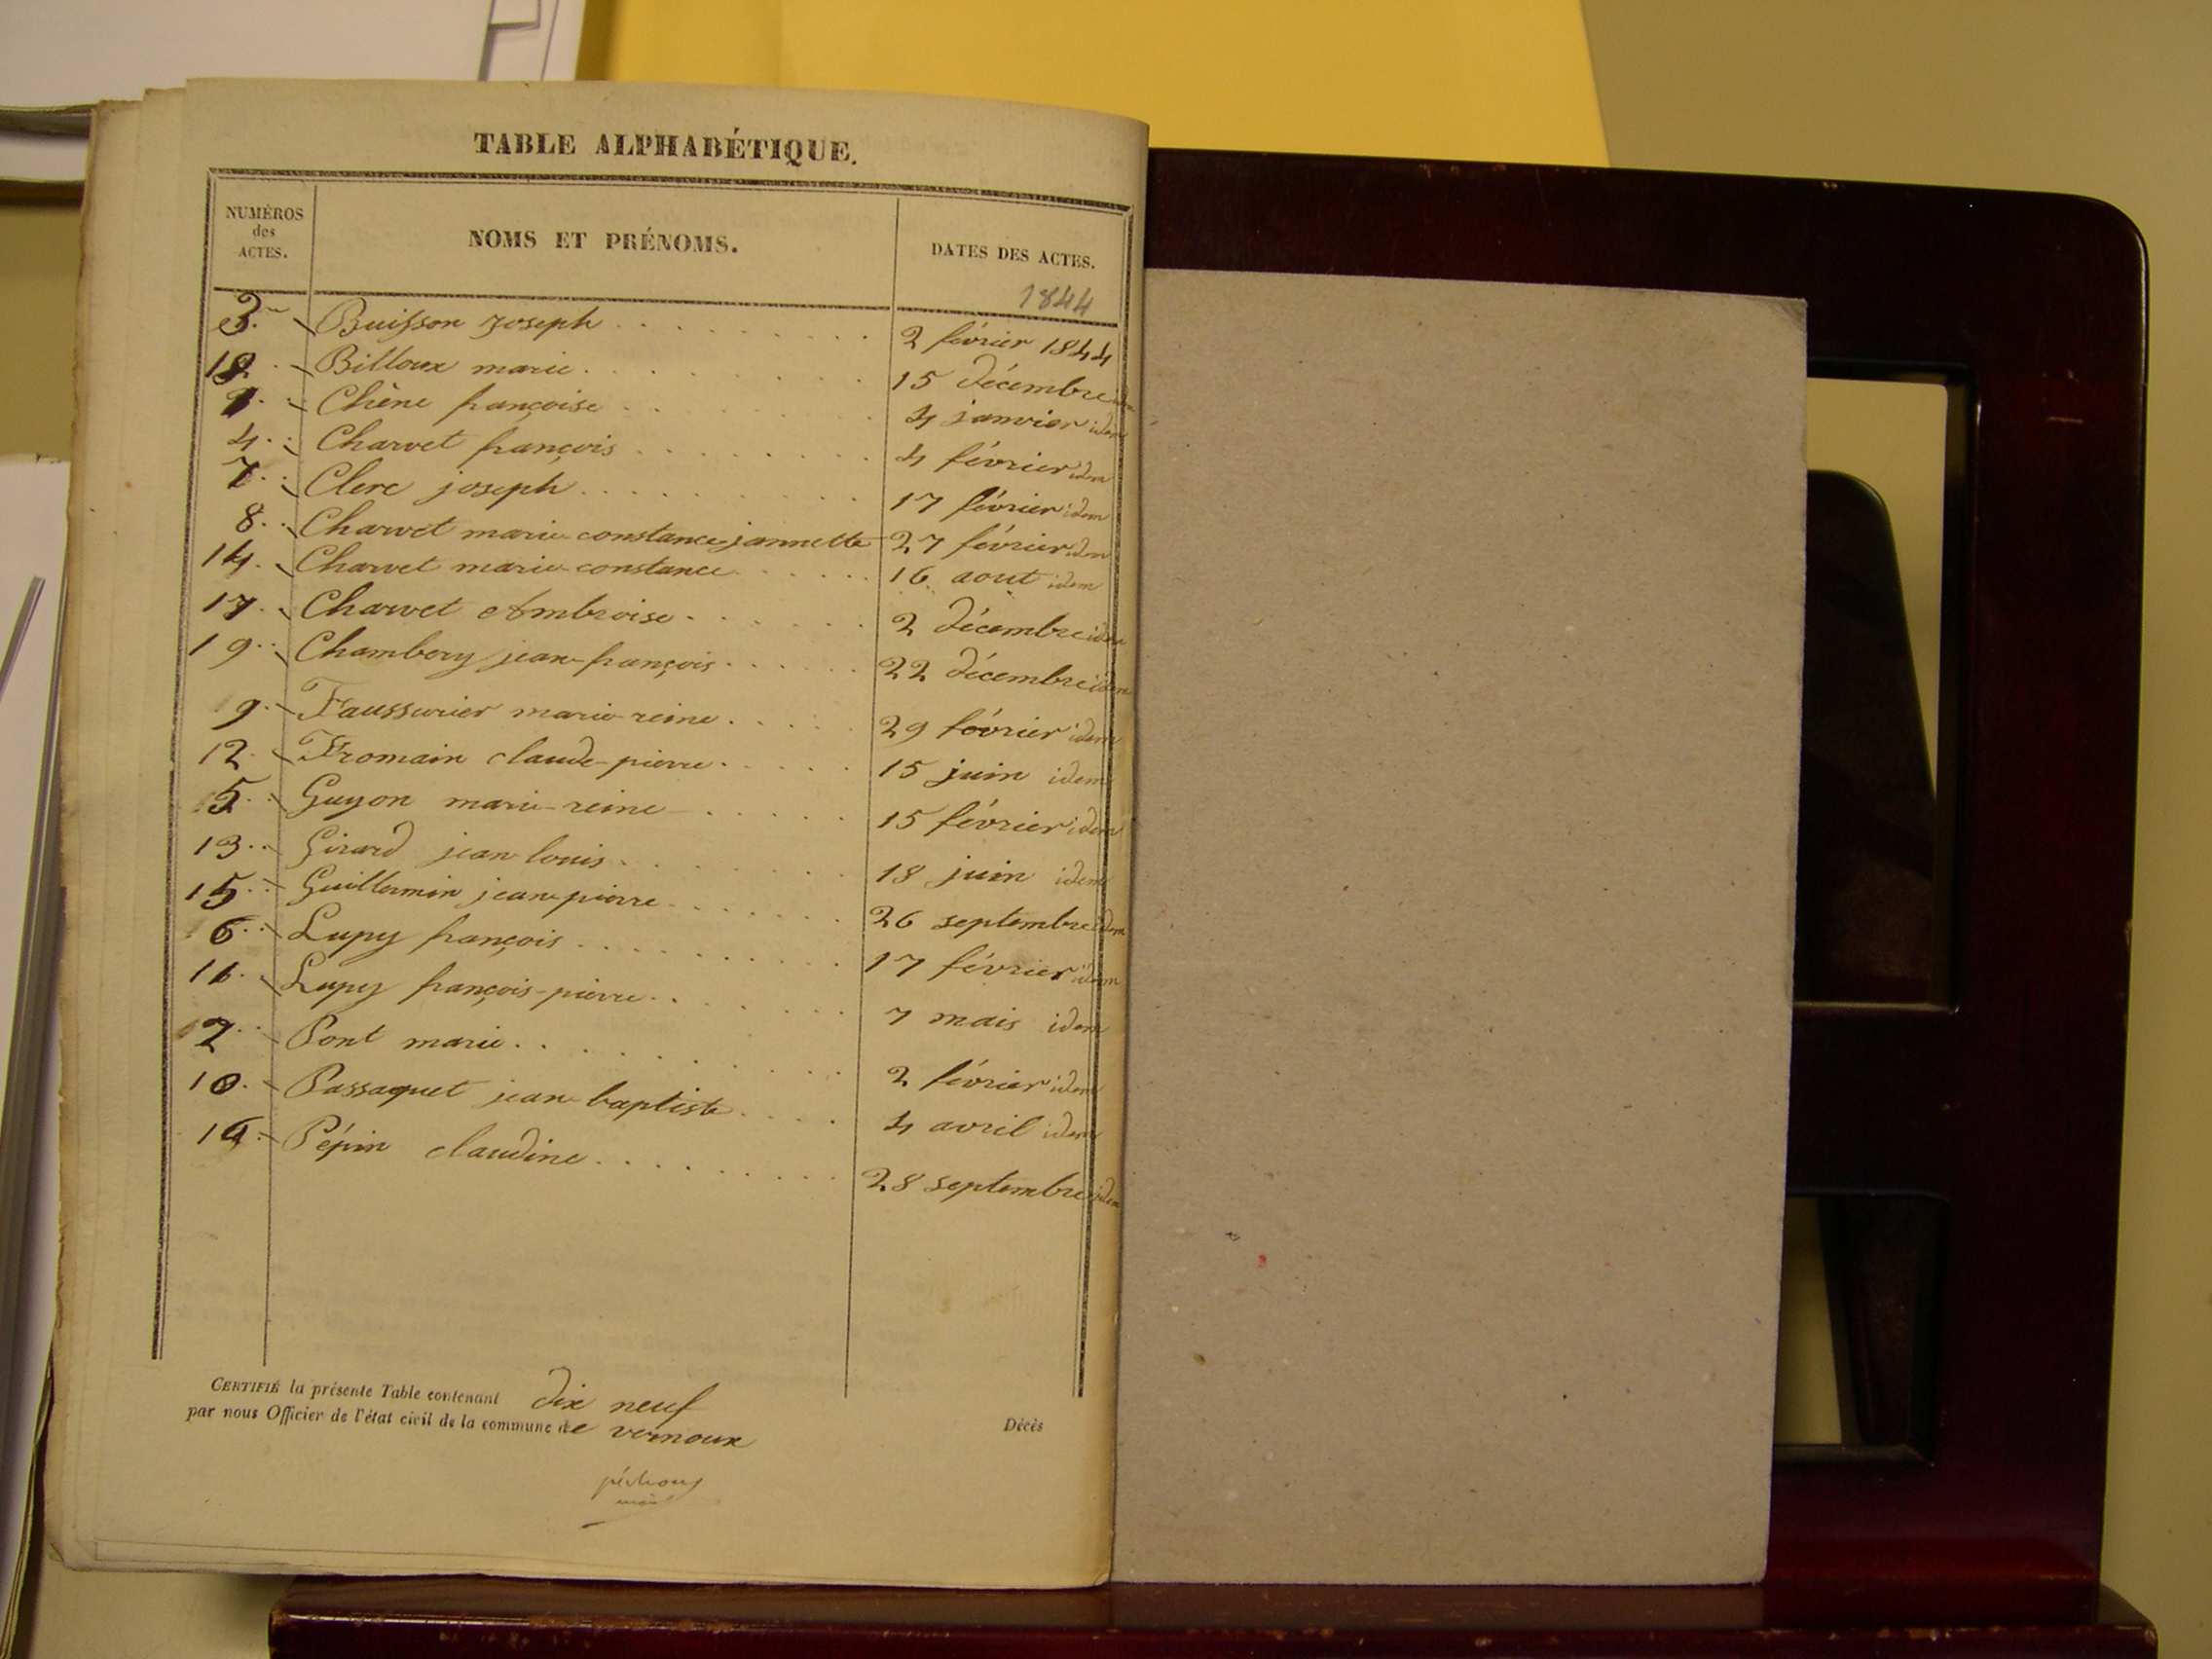 TABLE ALPHABÉTIQUE.
NUMÉROS des ACTES. NOMS ET PRÉNOMS. DATES DES ACTES.
1844
3. Buisson Joseph 2 février 1844
18. Billoux marie 15 décembre idem
1. Chêne françoise 4 janvier idem
4. Charvet françois 4 février idem
7. Clerc joseph 17 février idem
8. Charvet marie constance jannette 27 février idem
14. Charvet marie constance 16 aout idem
17. Charvet Ambroise 2 décembre idem
19. Chambery jean-françois 22 décembre idem
9. Faussurier marie reine 29 février idem
12. Fromain claude-pierre 15 juin idem
5. Guyon marie-reine 15 février idem
13. Girard jean louis 18 juin idem
15. Guillermin jean pierre 26 septembre idem
6. Lupy françois 17 février idem
11. Lupy françois-pierre 7 mais idem
2. Pont marie 2 février idem
10. Passaquet jean baptiste 4 avril idem
16. Pépin claudine 28 septembre idem
CERTIFIÉ la présente Table contenant dix neuf Décès
par nous Officier de l'état civil de la commune de vernoux